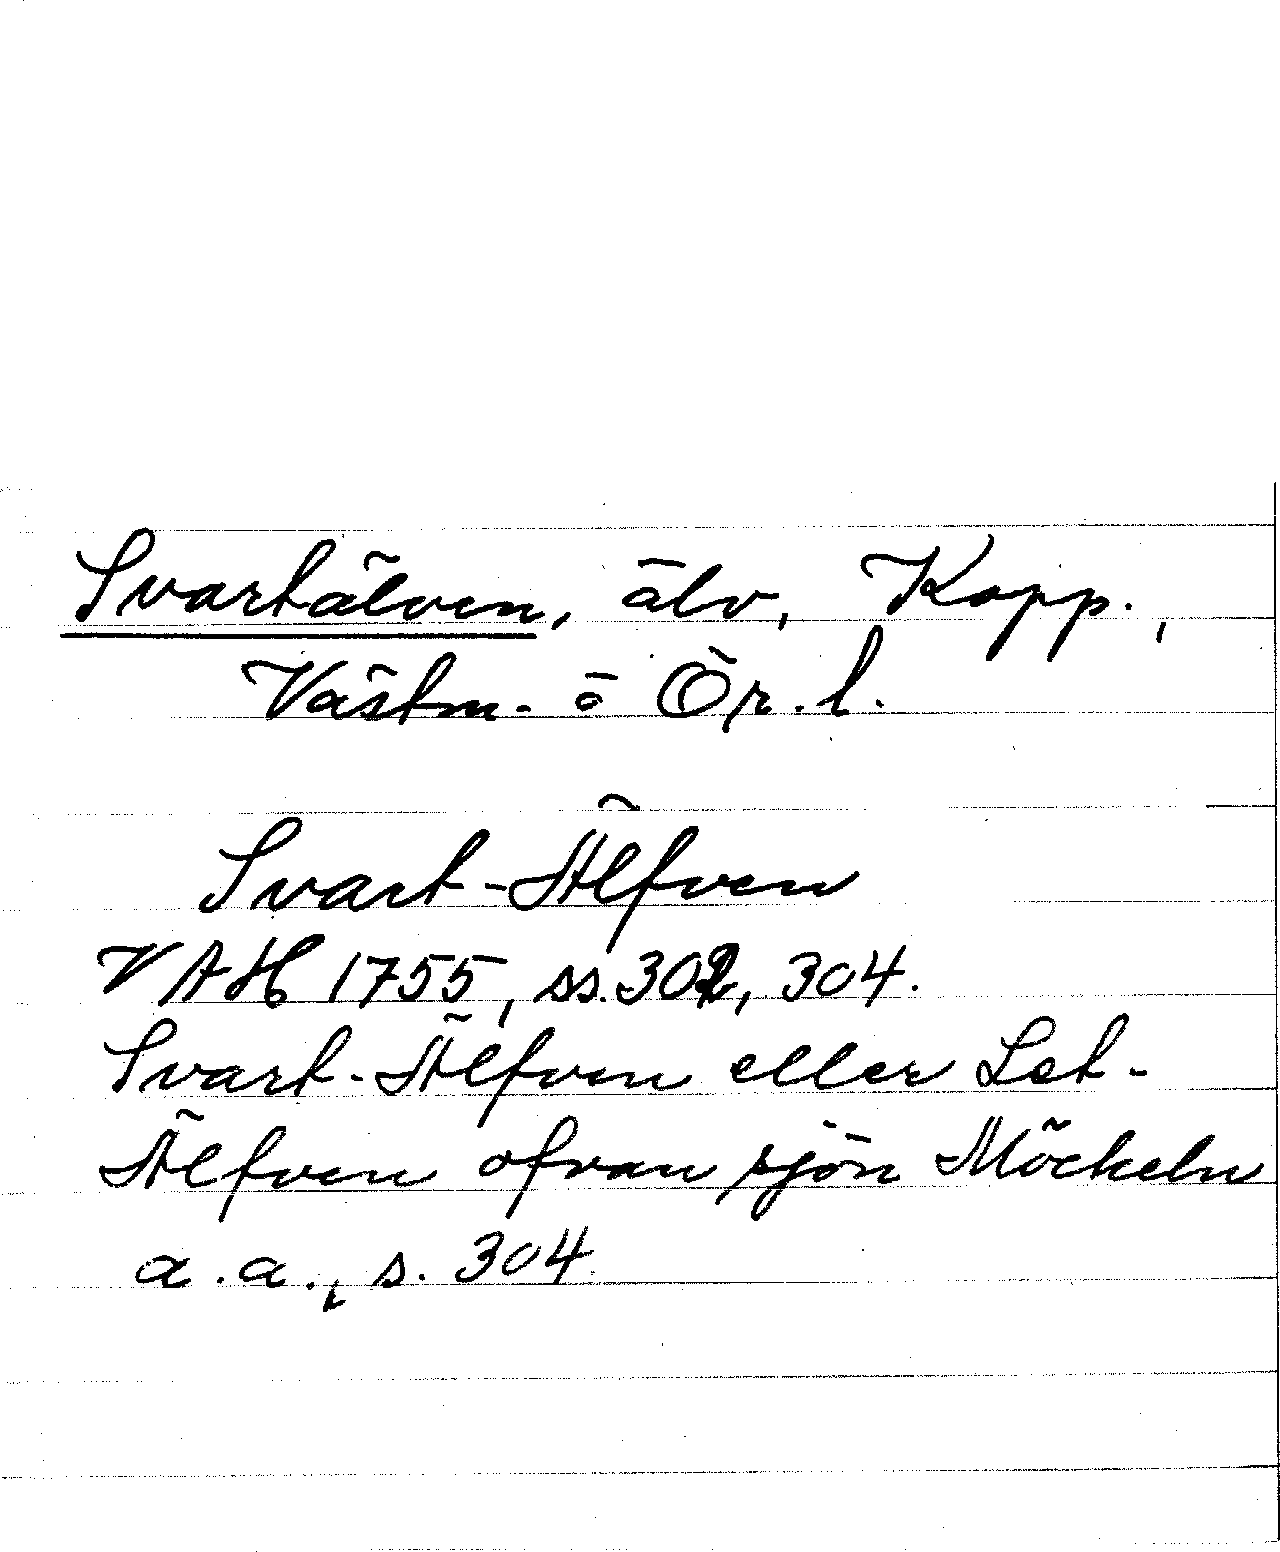 Svartälven, älv, Kopp.,
Västm. o Ör. l.
Svart-Älfven
VAH 1755, ss. 302, 304.
Svart-Älfven eller Let-
Älfven ofvan sjön Möckeln
a.a., s. 304.